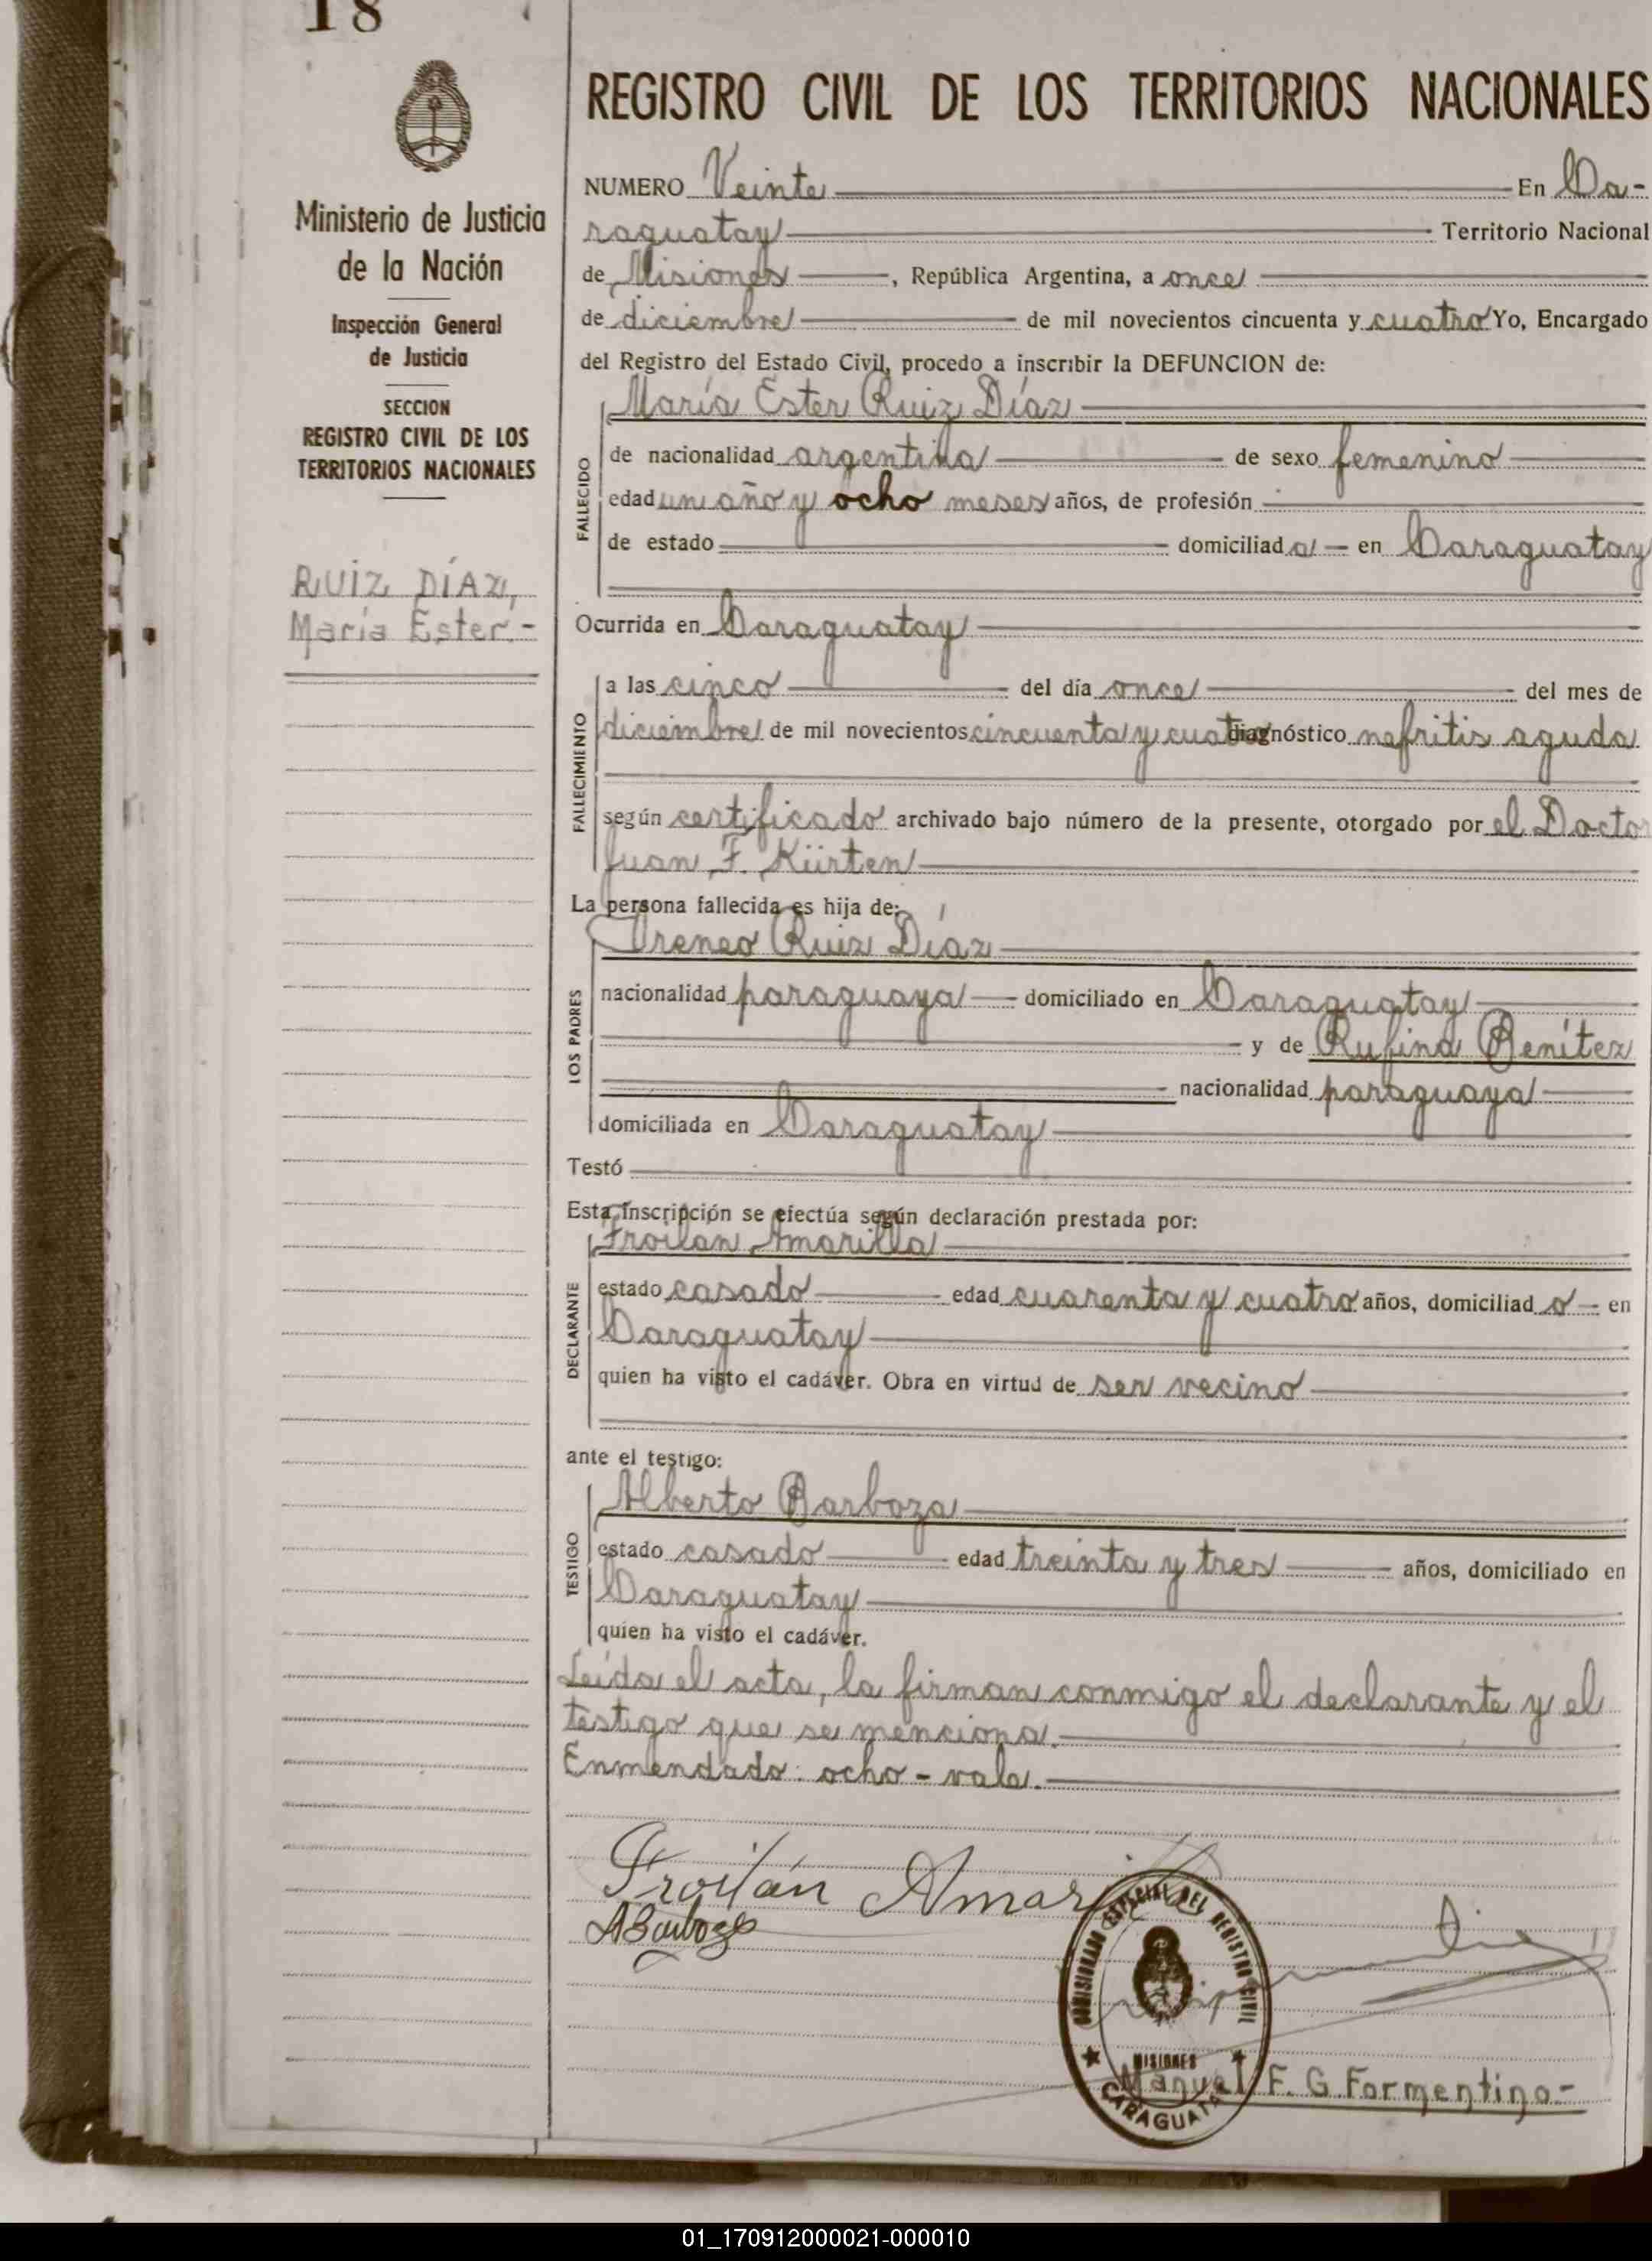 18
Ministerio de Justicia
de la Nación
Inspección General
de Justicia
SECCION
REGISTRO CIVIL DE LOS
TERRITORIOS NACIONALES
RUIZ DÍAZ,
María Ester.-
REGISTRO CIVIL DE LOS TERRITORIOS NACIONALES
NUMERO Veinte En Ca-
raguatay Territorio Nacional
de Misiones, República Argentina, a once
de diciembre de mil novecientos cincuenta y cuatro Yo, Encargado
del Registro del Estado Civil, procedo a inscribir la DEFUNCION de:
FALLECIDO
María Ester Ruiz Díaz
de nacionalidad argentina de sexo femenino
edad un año y ocho meses años, de profesión
de estado domiciliada en Caraguatay
Ocurrida en Caraguatay
FALLECIMIENTO
a las cinco del día once del mes de
diciembre de mil novecientos cincuenta y cuatro diagnóstico nefritis aguda
según certificado archivado bajo número de la presente, otorgado por el Doctor
Juan F. Kürten
La persona fallecida es hija de:
LOS PADRES
Ireneo Ruiz Díaz
nacionalidad paraguaya domiciliado en Caraguatay
y de Rufina Benítez
nacionalidad paraguaya
domiciliada en Caraguatay
Testó
Esta inscripción se efectúa según declaración prestada por:
DECLARANTE
Froilan Amarilla
estado casado edad cuarenta y cuatro años, domiciliado en
Caraguatay
quien ha visto el cadáver. Obra en virtud de ser vecino
ante el testigo:
TESTIGO
Alberto Barboza
estado casado edad treinta y tres años, domiciliado en
Caraguatay
quien ha visto el cadáver.
Leída el acta, la firman conmigo el declarante y el
testigo que se menciona.
Enmendado: ocho - vale.
Froilán Amarilla
ABarboza
COMISIONADO ESPECIAL DEL REGISTRO CIVIL
MISIONES
CARAGUATAY
Manuel F. G. Formentino.-
01_170912000021-000010